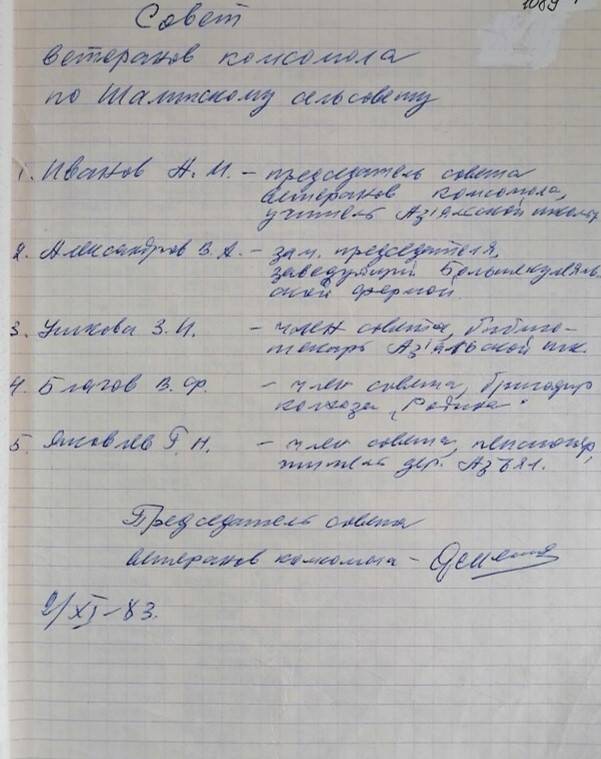 1089
Совет
ветеранов комсомола
по Шалинскому сельсовету
1. Иванов А. И. – председатель совета
ветеранов комсомола,
учитель Азъяльской школы
2. Александров В. А. – зам. председателя,
заведующий Большекуляль-
ской фермой.
3. З. И. – член совета, библио-
текарь Азъяльской шк.
4. Благов В. Ф. – член совета, бригадир
колхоза „Родина"
5. Яковлев Г. Н. – член совета, пенсионер,
житель дер. Азъял.
Председатель совета
ветеранов комсомола –
2/XI–83.